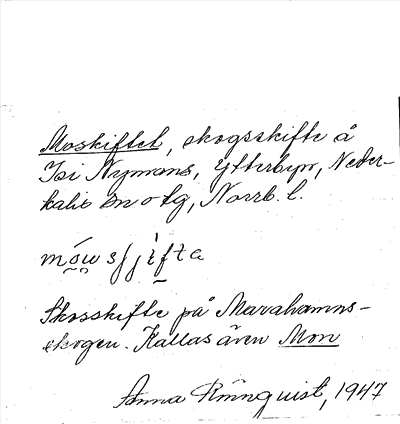 Moskiftet, skogsskifte å
Isi Nymans, Ytterbyn, Neder-
kalix sn o tg, Norrb. l.
móusʃjìfta
Skosskifte på Marahamns-
skogen. Kallas även Mon
Anna Rönnquist, 1947